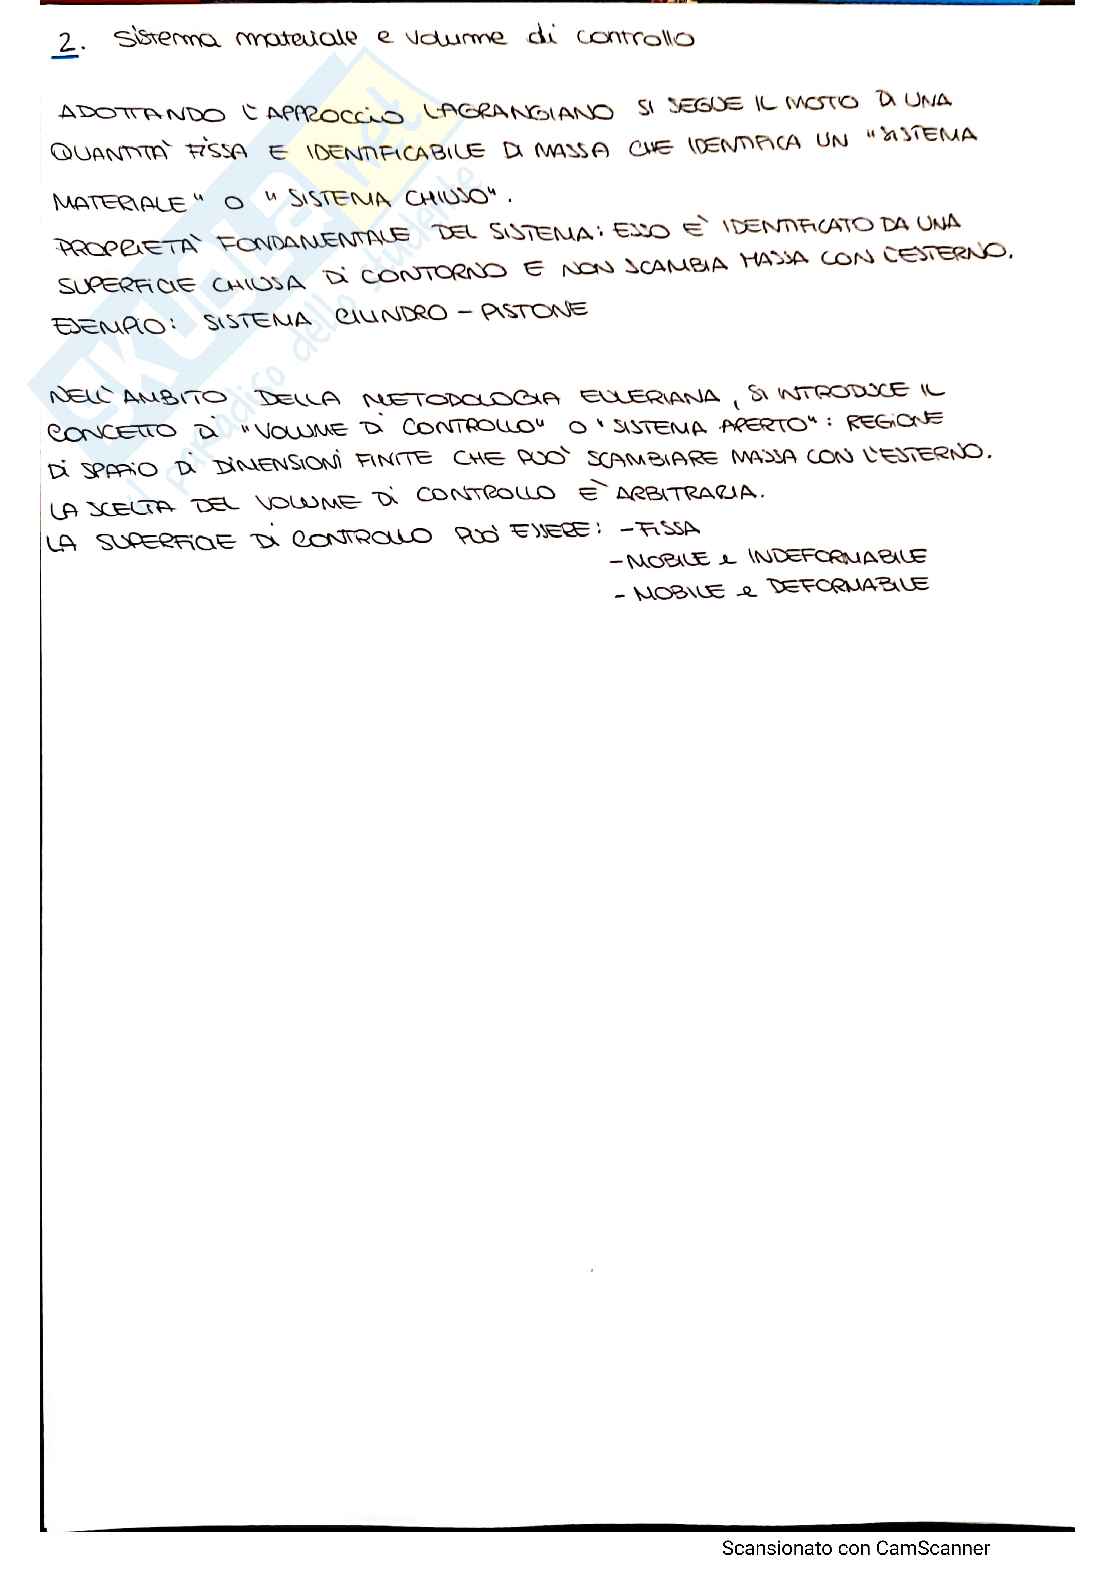 2. Sistema materiale e volume di controllo
ADOTTANDO L'APPROCCIO LAGRANGIANO SI SEGUE IL MOTO DI UNA
QUANTITA' FISSA E IDENTIFICABILE DI MASSA CHE IDENTIFICA UN "SISTEMA
MATERIALE" O "SISTEMA CHIUSO".
PROPRIETA' FONDAMENTALE DEL SISTEMA: ESSO E' IDENTIFICATO DA UNA
SUPERFICIE CHIUSA DI CONTORNO E NON SCAMBIA MASSA CON L'ESTERNO.
ESEMPIO: SISTEMA CILINDRO - PISTONE
NELL'AMBITO DELLA METODOLOGIA EULERIANA, SI INTRODUCE IL
CONCETTO DI "VOLUME DI CONTROLLO" O "SISTEMA APERTO": REGIONE
DI SPAZIO DI DIMENSIONI FINITE CHE PUO' SCAMBIARE MASSA CON L'ESTERNO.
LA SCELTA DEL VOLUME DI CONTROLLO E' ARBITRARIA.
LA SUPERFICIE DI CONTROLLO PUO' ESSERE: - FISSA
- MOBILE e INDEFORMABILE
- MOBILE e DEFORMABILE
skuola.net
il paradiso dello studente
Scansionato con CamScanner